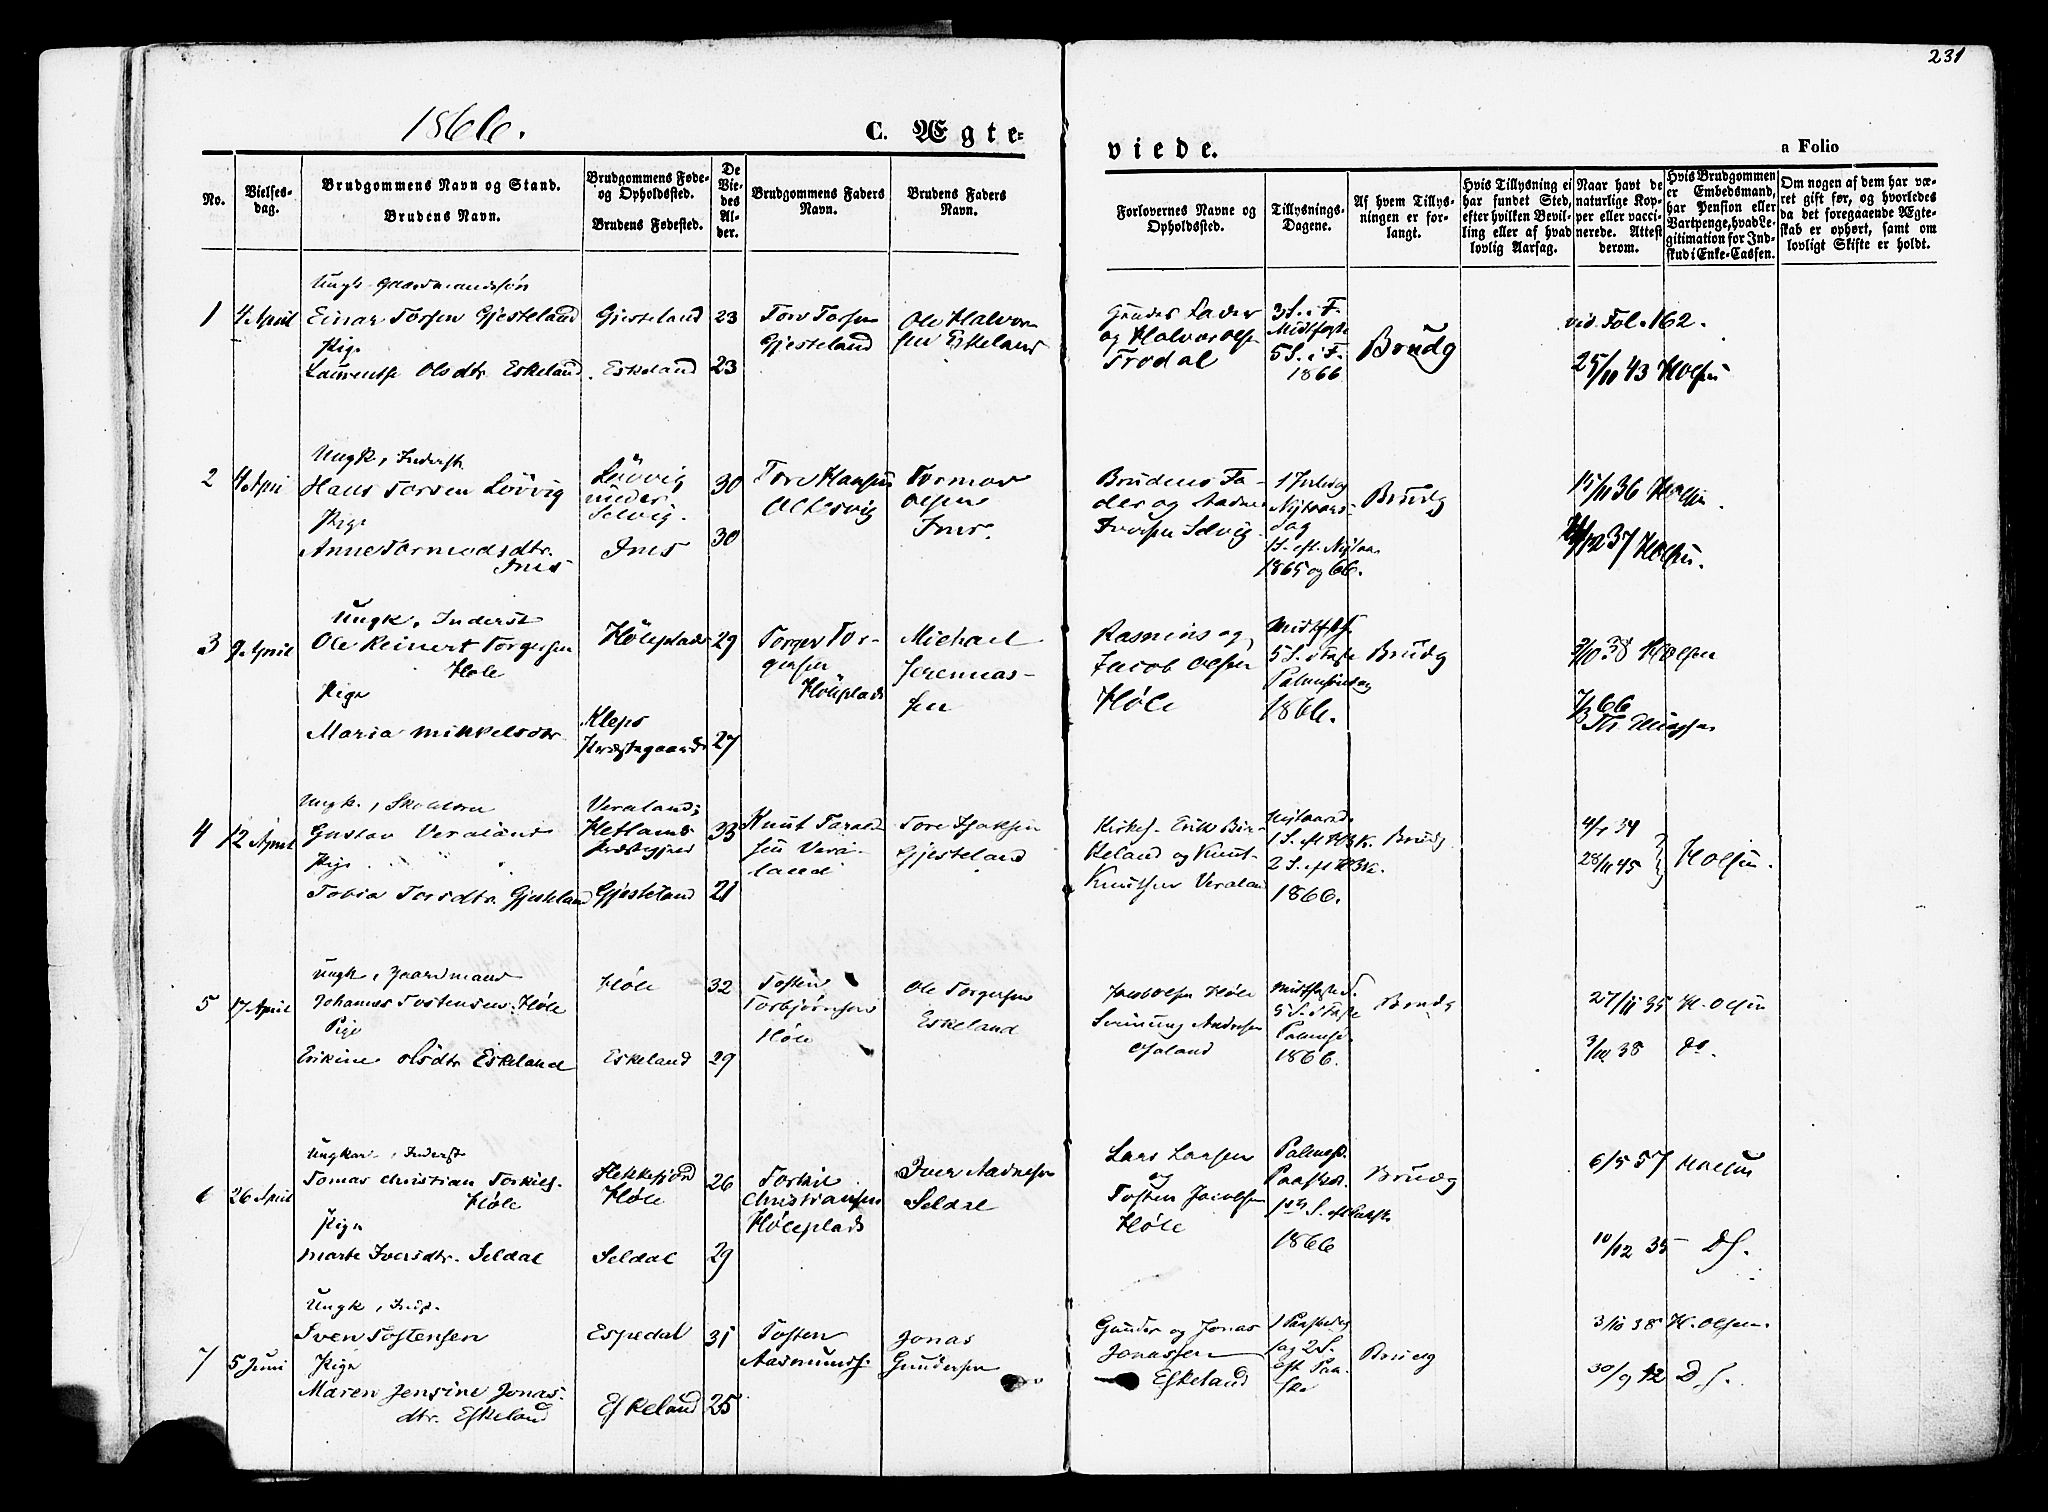 231
1866.
C. Ægte-
viede.
a Folio
No.
Vielses-
dag.
Brudgommens Navn og Stand.
Brudens Navn.
Brudgommens Føde-
og Opholdssted.
Brudens Fødested.
De
Vie-
des
Al-
der.
Brudgommens Faders
Navn.
Brudens Faders
Navn.
Forlovernes Navne og
Opholdssted.
Tillysnings-
Dagene.
Af hvem Tillys-
ningen er for-
langt.
Hvis Tillysning ei
har fundet Sted,
efter hvilken Bevil-
ling eller af hvad
lovlig Aarsag.
Naar havt de
naturlige Kop-
per eller vacci-
nerede. Attest
derom.
Hvis Brudgommen
er Embedsmand,
har Pension eller
Vartpenge, hvad Le-
gitimation for Ind-
skud i Enke-Cassen.
Om nogen af dem har væ-
ret gift før, og hvorledes
da det foregaaende Ægte-
skab er ophørt, samt om
lovligt Skifte er holdt.
Ungk. Gaardmandssøn
1 4 April Einar Torsen Gjesteland Gjesteland 23
Pige
Laurentse Olsdtr Eskeland Eskeland 23
Tore Torsen
Gjesteland
Ole Halvor-
sen Eskeland
Gunder Lader
og Halvor Olsen
Frodal
3 S. i F.
Midtfaste
5 S. i F.
1866
Brudg
vid. Fol. 162.
25/11 43 H Olsen
Ungk, Inderst
2 4 April Hans Torsen Løvvig
Pige
Anne Tormodsdtr.
Ims
Løvvig
under
Selvig.
Ims
30
30
Tore Hansen
Oltesvig
Tormod
Olsen
Ims.
Brudens Fa-
der og Aadne
Iversen Selvig
1 Juledag
Nytaars-
dag
1 S. eft. Nytaar
1865 og 66.
Brudg
15/11 36 H Olsen
12 37 H Olsen.
Ungk, Inderst
3 9 April Ole Reinert Torgersen
Høle
Pige
Maria Mikkelsdtr
Høleplads
Kleps
Præstegaard
29
27
Torger Tor-
gersen
Høleplads
Michael
Jeremias-
sen
Rasmus og
Jacob Olsen
Høle
Midtfaste
5 S. i Faste
Palmesøndag
1866.
Brudg
3/10 38 H Olsen
7/3 66
Ungk.,
4 12 April Gustav Veraland
Pige
Tobia Torsdtr. Gjesteland
Veraland,
Hetlands
Præstegjeld
Gjesteland
33
21
Knut Tarald-
sen Vera-
land
Tore
Gjesteland
Kirkes. Erik Bir-
keland og Knut
Knutsen Veraland
Nytaarsd
1 S. eft H3K.
2 S. eft H3K.
1866.
Brudg
4/1 34
28/11 45
H Olsen.
Ungk, Gaardmand
5 17 April Johannes Tostensen Høle
Pige
Eskine Olsdtr Eskeland
Høle
Eskeland
32
29
Tosten
Torbjørnsen
Høle
Ole Torgersen
Eskeland
Jacob Olsen Høle
Svenung Andersen
Midtfastes.
5 S. i Faste
Palmesø.
1866.
Brudg
27/11 35 H. Olsen
3/10 38 do.
Ungkar, Inderst
6 26 April Tomas Christian Torkils.
Høle
Pige
Marte Iversdtr. Seldal
Flekkefjord
Høle
Seldal
26
29
Torkil
Christiansen
Høleplads
Iver Aadnesen
Seldal
Lars Larsen
og
Tosten Jacobsen
Høle
Palmesø.
Paaskd.
1ste S. eft Paaske
1866
Brudg
6/5 57 H Olsen
10/12 35 DS.
Ungk, Inds.
7 5 Juni Sven Tostensen
Pige
Maren Jensine Jonas-
dtr. Eskeland
Espedal
Eskeland
31
25
Tosten
Aasmunds.
Jonas
Gundersen
Gunder og Jonas
Jonassen
Eskeland
1 Paaskedag
1 og 2 S.
eft Paa-
ske
Brudg
3/10 38 H. Olsen.
30/9 42 DS.